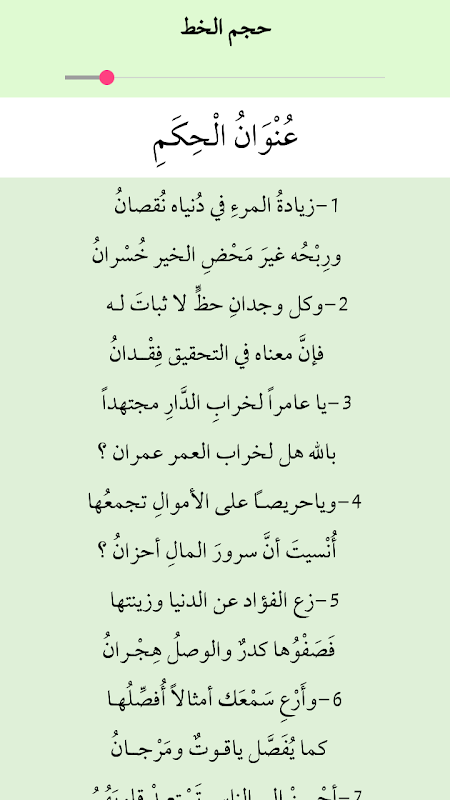 حجم الخط
عُنْوَانُ الْحِكَمِ
1-زيادةُ المرءِ في دُنياه نُقصانُ
ورِبْحُه غيرَ مَحْضِ الخير خُسْرانُ
2-وكل وجدانِ حظٍّ لا ثباتَ لـه
فإنَّ معناه في التحقيق فِقْـدانُ
3-يا عامراً لخرابِ الدَّارِ مجتهداً
بالله هل لخراب العمر عمران ؟
4-وياحريصـًا على الأموالِ تجمعُها
أُنْسيتَ أنَّ سرورَ المالِ أحزانُ ؟
5-زع الفؤاد عن الدنيا وزينتها
فَصَفْوُها كدرٌ والوصلُ هِجْـرانُ
6-وأَرْعِ سَمْعَك أمثالاً أُفصِّلُهـا
كما يُفَصَّل ياقـوتٌ ومَرْجـانُ
7-أحْسِنْ إلى الناسِ تَسْتعبِدْ قلوبَهُمُ